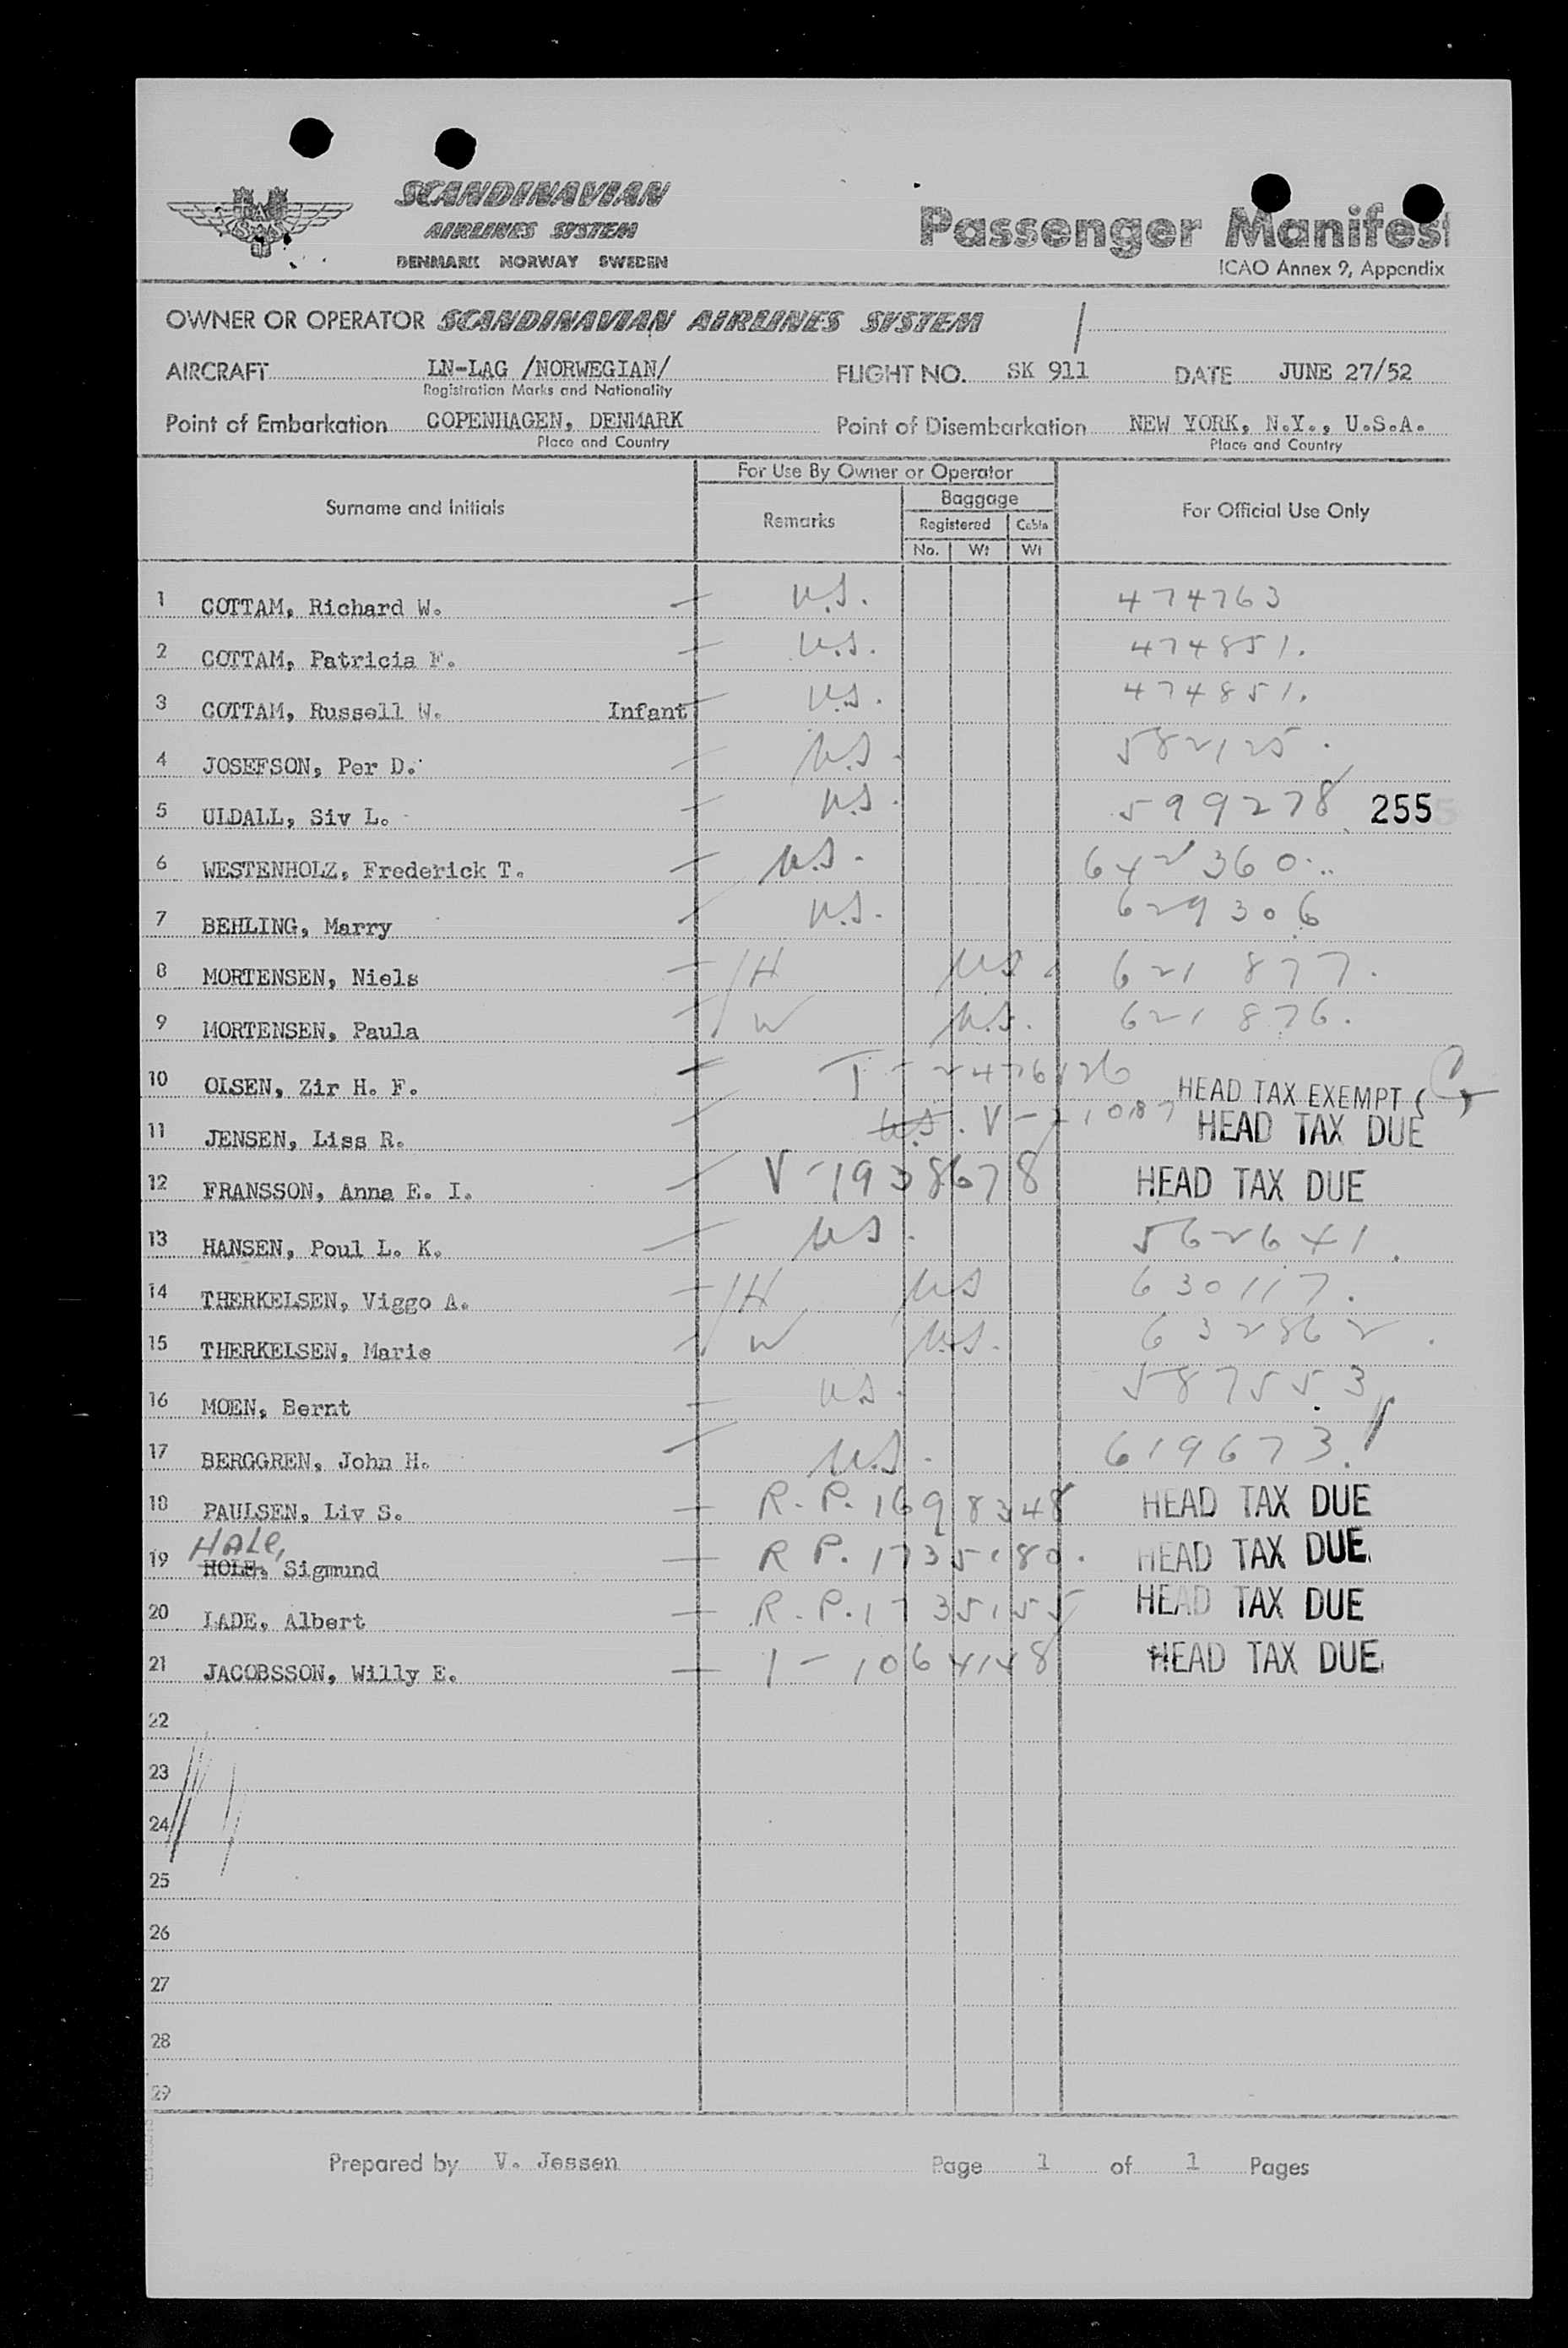 SCANDINAVIAN
AIRLINES SYSTEM
DENMARK NORWAY SWEDEN
Passenger Manifest
ICAO Annex 9, Appendix
OWNER OR OPERATOR SCANDINAVIAN AIRLINES SYSTEM
AIRCRAFT LN-LAG /NORWEGIAN/ FLIGHT NO. SK 911 DATE JUNE 27/52
Registration Marks and Nationality
Point of Embarkation COPENHAGEN, DENMARK Point of Disembarkation NEW YORK, N.Y., U.S.A.
Place and Country Place and Country
For Use By Owner or Operator
Surname and Initials Remarks Baggage For Official Use Only
Registered Cabin
No. Wt Wt
1 COTTAM, Richard W. U.S. 474763
2 COTTAM, Patricia F. U.S. 474851.
3 COTTAM, Russell W. Infant U.S. 474851.
4 JOSEFSON, Per D. U.S. 582125.
5 ULDALL, Siv L. U.S. 599278 255
6 WESTENHOLZ, Frederick T. U.S. 642360
7 BEHLING, Marry U.S. 629306
8 MORTENSEN, Niels H U.S. 621877.
9 MORTENSEN, Paula W U.S. 621876.
10 OLSEN, Zir H. F. T-2476126 HEAD TAX EXEMPT
11 JENSEN, Liss R. U.S. V- HEAD TAX DUE
12 FRANSSON, Anna E. I. V-1938678 HEAD TAX DUE
13 HANSEN, Poul L. K. U.S. 562641.
14 THERKELSEN, Viggo A. H U.S 630117.
15 THERKELSEN, Marie W U.S. 632862.
16 MOEN, Bernt U.S. 587553
17 BERGGREN, John H. U.S. 619673.
18 PAULSEN, Liv S. R.P. 1698348 HEAD TAX DUE
HALE,
19 HOLE, Sigmund R P. 1735180. HEAD TAX DUE.
20 LADE, Albert R.P. 1735155 HEAD TAX DUE
21 JACOBSSON, Willy E. 1-1064148 HEAD TAX DUE.
22
23
24
25
26
27
28
29
Prepared by V. Jessen Page 1 of 1 Pages